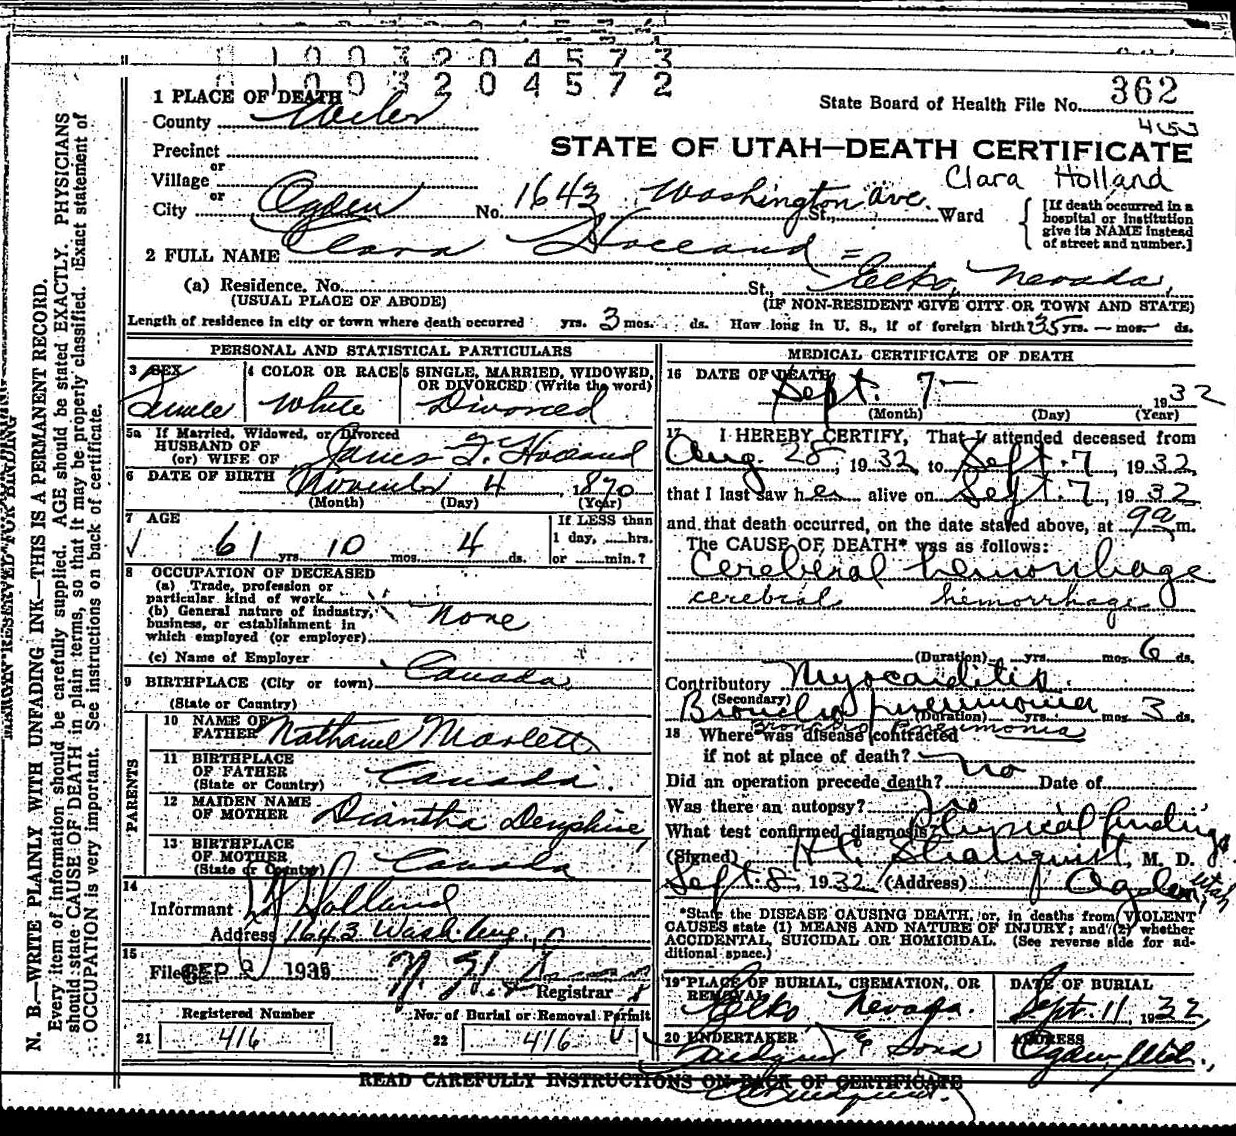 1 0 0 3 2 0 4 5 7 3
0 1 0 0 3 2 0 4 5 7 2
1 PLACE OF DEATH
State Board of Health File No. 362
County Weber
Precinct
STATE OF UTAH—DEATH CERTIFICATE
or
Village
Clara Holland
or
City Ogden No. 1643 Washington Ave. St., Ward
[If death occurred in a hospital or institution give its NAME instead of street and number.]
2 FULL NAME Clara Holland
(a) Residence. No. St., Elko, Nevada,
(USUAL PLACE OF ABODE) (IF NON-RESIDENT GIVE CITY OR TOWN AND STATE)
Length of residence in city or town where death occurred yrs. 3 mos. ds. How long in U. S., if of foreign birth 35 yrs. — mos. — ds.
PERSONAL AND STATISTICAL PARTICULARS
3 SEX
Female
4 COLOR OR RACE
White
5 SINGLE, MARRIED, WIDOWED, OR DIVORCED (Write the word)
Divorced
5a If Married, Widowed, or Divorced
HUSBAND OF
(or) WIFE OF James Holland
6 DATE OF BIRTH November 4, 1870
(Month) (Day) (Year)
7 AGE
61 yrs. 10 mos. 4 ds.
If LESS than
1 day, hrs.
or min.?
8 OCCUPATION OF DECEASED
(a) Trade, profession or
particular kind of work
(b) General nature of industry,
business, or establishment in
which employed (or employer)
None
(c) Name of Employer
9 BIRTHPLACE (City or town) Canada
(State or Country)
PARENTS
10 NAME OF
FATHER Nathaniel Marlett
11 BIRTHPLACE
OF FATHER
(State or Country) Canada.
12 MAIDEN NAME
OF MOTHER Diantha
13 BIRTHPLACE
OF MOTHER
(State or Country) Canada
14
Informant Holland
Address 1643 Wash. Ave.
15
Filed SEP
Registrar
Registered Number
21 416
No. of Burial or Removal Permit
22 416
MEDICAL CERTIFICATE OF DEATH
16 DATE OF DEATH
Sept. 7— 1932
(Month) (Day) (Year)
17 I HEREBY CERTIFY, That I attended deceased from
Aug. 28, 1932 to Sept. 7, 1932
that I last saw her alive on Sept. 7, 1932
and that death occurred, on the date stated above, at 9a m.
The CAUSE OF DEATH* was as follows:
Cerebral hemorrhage
cerebral hemorrhage
(Duration) yrs. mos. 6 ds.
Contributory Myocarditis.
(Secondary)
Broncho pneumonia
(Duration) yrs. mos. 3 ds.
18 Where was disease contracted
if not at place of death?
Did an operation precede death? no Date of
Was there an autopsy? no
What test confirmed diagnosis? Physical findings
(Signed) Stranquist, M. D.
Sept. 8, 1932 (Address) Ogden, Utah
*State the DISEASE CAUSING DEATH, or, in deaths from VIOLENT
CAUSES state (1) MEANS AND NATURE OF INJURY; and (2) whether
ACCIDENTAL, SUICIDAL OR HOMICIDAL. (See reverse side for ad-
ditional space.)
19 PLACE OF BURIAL, CREMATION, OR
REMOVAL
Elko Nevada.
DATE OF BURIAL
Sept. 11, 1932
20 UNDERTAKER
Lindquist & Sons
ADDRESS
Ogden, Utah.
READ CAREFULLY INSTRUCTIONS ON BACK OF CERTIFICATE
Lindquist.
MARGIN RESERVED FOR BINDING
N. B.—WRITE PLAINLY WITH UNFADING INK—THIS IS A PERMANENT RECORD.
Every item of information should be carefully supplied. AGE should be stated EXACTLY. PHYSICIANS
should state CAUSE OF DEATH in plain terms, so that it may be properly classified. Exact statement of
OCCUPATION is very important. See instructions on back of certificate.